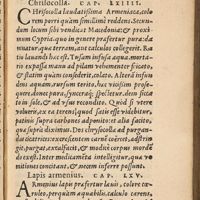 Chrisocolla. CAP. LXIIII.
CHrisocolla laudatissima Armeniaca, colo
rem porri quàm simillimè reddens. Secun-
dum locum sibi vendicat Macedonia: & proxi-
mum Cypria. quo in genere præfertur pura: da
mnatur, quæ terram, aut calculos collegerit. Ra
tio lauandi hæc est. Tusam infusa aqua, morta-
rio expassa manu ad pilam vehementer fricato,
& statim quàm considerit, colato. Altera infusa
dein aquam, rursum terito, hæc vicissim prope-
rantes donec pura, syncera'q; spectetur. dein siccā
to in sole, & ad vsum recondito. Quod si vrere
volueris, ex ea terens, quod satis esse videbitur,
patinis supra carbones adponito: et alia facito,
quæ supra diximus. Dos chrysocollæ ad purgan-
da
excrescentem carnē coërcet, adstrin
git, purgat, excalfacit, & modicè corpus morde
do exest. Inter medicamēta intelligitur, quæ vo
mitiones concitant, & necem inferre possunt.
Lapis armenius. CAP. LXV.
ARmenius lapis præfertur lauis, colore cæ-
ruleo, perquàm æquabilis, calculo carens,